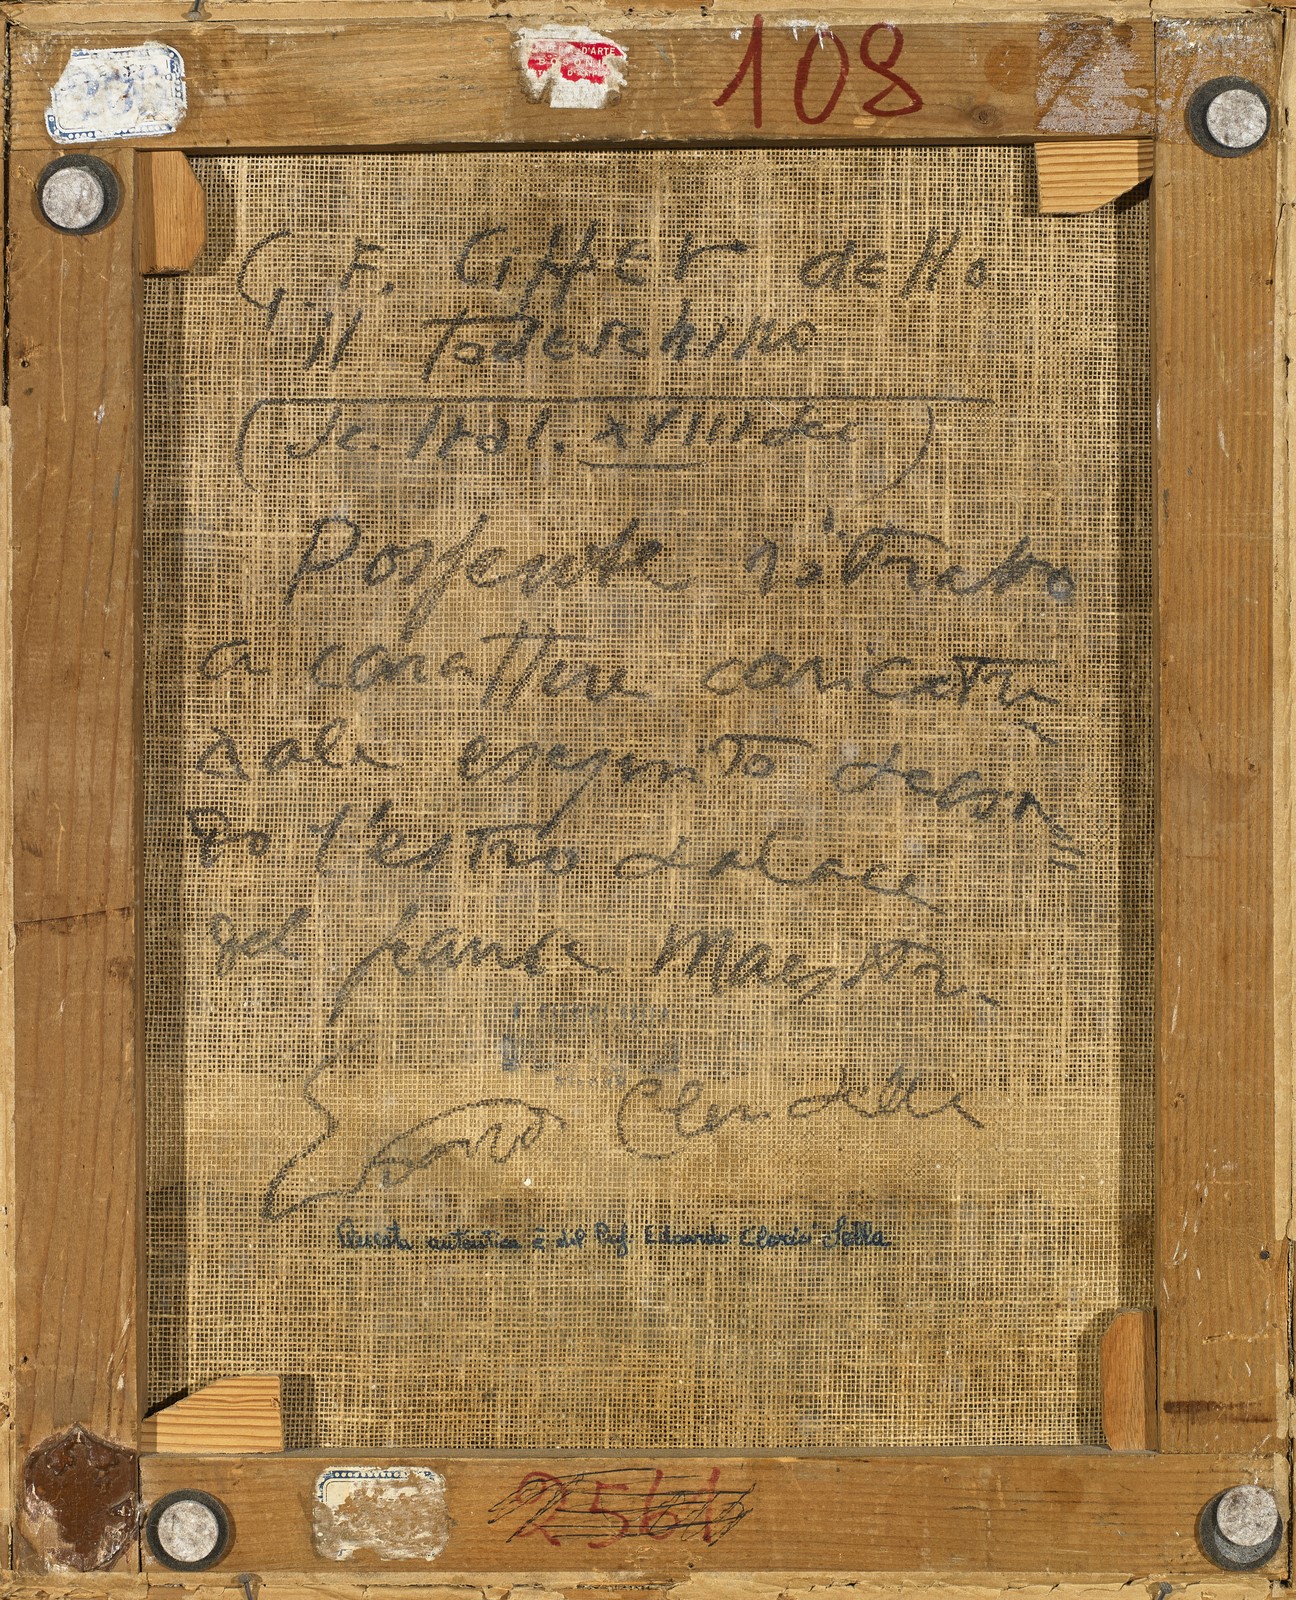 D'ARTE
108
G. F. Ciffer detto
il Todeschino
(Sc. Ital. XVIII
Possente ritratto
a carattere caricatu=
rale eseguito secon=
do l'estro salace
del grande Maestro.
Edoardo Clerici
Questa autentica è del Prof. Edoardo Clerici Sella
2561